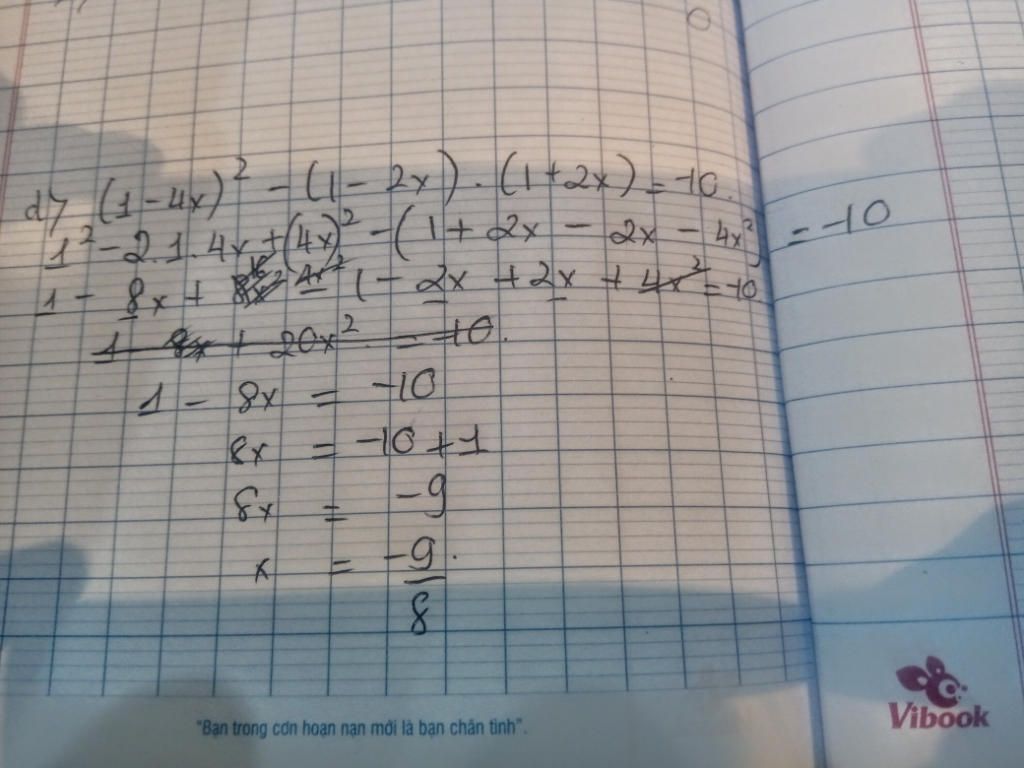 d) (1-4x)² - (1-2x).(1+2x) = -10.
1² - 2.1.4x + (4x)² - (1+2x - 2x - 4x²) = -10
1 - 8x + 4x² 1 - 2x + 2x + 4x² = -10
1 8x + 20x² = -10.
1 - 8x = -10
8x = -10+1
8x = -9
x = -9.
8
"Bạn trong cơn hoạn nạn mới là bạn chân tình".
Vibook